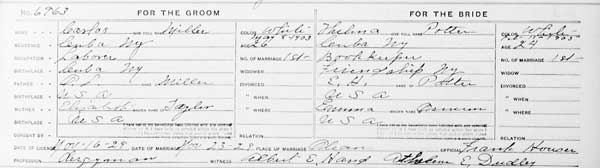 No. 6963 FOR THE GROOM FOR THE BRIDE
NAME Carlos AND FULL NAME Miller COLOR White Thelma AND FULL NAME Potter COLOR White
RESIDENCE Cuba Ny AGE 26 Cuba Ny AGE 24
OCCUPATION Laborer NO. OF MARRIAGE 1st Bookkeeper NO. OF MARRIAGE 1st
BIRTHPLACE Cuba Ny WIDOWER Friendship Ny WIDOW
FATHER Miller DIVORCED E. H. Potter DIVORCED
BIRTHPLACE U S A " WHEN U S A " WHEN
MOTHER Elizabeth MAIDEN NAME Taylor " WHERE Emma MAIDEN NAME " WHERE
BIRTHPLACE U S A U S A
CONSENT BY
DATE OF LICENSE Nov. 16-29 DATE OF MARRIAGE Nov 23-29 PLACE OF MARRIAGE Olean OFFICIAL Frank Houser
PROFESSION Clergyman WITNESS Albert E. Hand E. Dudley